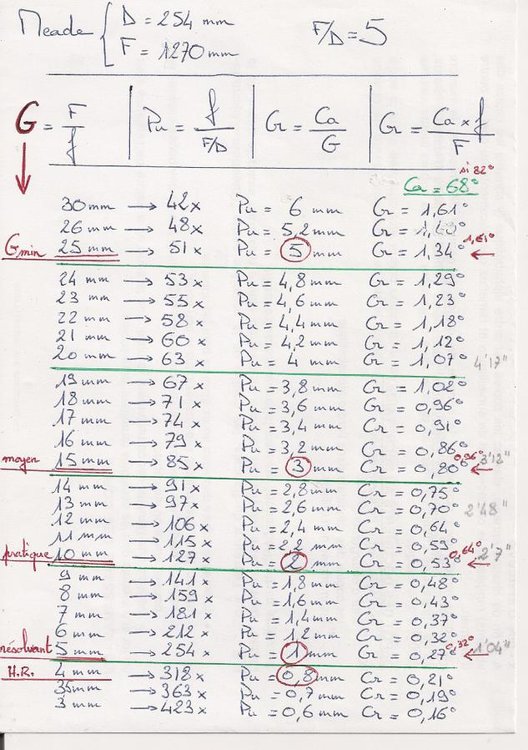 Meade { D = 254 mm F/D = 5
F = 1270 mm
G = F/f | Pu = f/F/D | Cr = Ca/G | Cr = Ca x f/F
si 82°
Ca = 68°
30 mm → 42 x Pu = 6 mm Cr = 1,61°
26 mm → 48 x Pu = 5,2 mm Cr = 1,40°
Gmin 25 mm → 51 x Pu = 5 mm Cr = 1,34° 1,61° ←
24 mm → 53 x Pu = 4,8 mm Cr = 1,29°
23 mm → 55 x Pu = 4,6 mm Cr = 1,23°
22 mm → 58 x Pu = 4,4 mm Cr = 1,18°
21 mm → 60 x Pu = 4,2 mm Cr = 1,12°
20 mm → 63 x Pu = 4 mm Cr = 1,07° 4'17"
19 mm → 67 x Pu = 3,8 mm Cr = 1,02°
18 mm → 71 x Pu = 3,6 mm Cr = 0,96°
17 mm → 74 x Pu = 3,4 mm Cr = 0,91°
16 mm → 79 x Pu = 3,2 mm Cr = 0,86°
moyen 15 mm → 85 x Pu = 3 mm Cr = 0,80° 0,96° ← 3'12"
14 mm → 91 x Pu = 2,8 mm Cr = 0,75°
13 mm → 97 x Pu = 2,6 mm Cr = 0,70°
12 mm → 106 x Pu = 2,4 mm Cr = 0,64° 2'48"
11 mm → 115 x Pu = 2,2 mm Cr = 0,59°
pratique 10 mm → 127 x Pu = 2 mm Cr = 0,53° 0,64° ← 2'7"
9 mm → 141 x Pu = 1,8 mm Cr = 0,48°
8 mm → 159 x Pu = 1,6 mm Cr = 0,43°
7 mm → 181 x Pu = 1,4 mm Cr = 0,37°
6 mm → 212 x Pu = 1,2 mm Cr = 0,32°
résolvant 5 mm → 254 x Pu = 1 mm Cr = 0,27° 0,32° ← 1'04"
H.R. 4 mm → 318 x Pu = 0,8 mm Cr = 0,21°
3,5 mm → 363 x Pu = 0,7 mm Cr = 0,19°
3 mm → 423 x Pu = 0,6 mm Cr = 0,16°